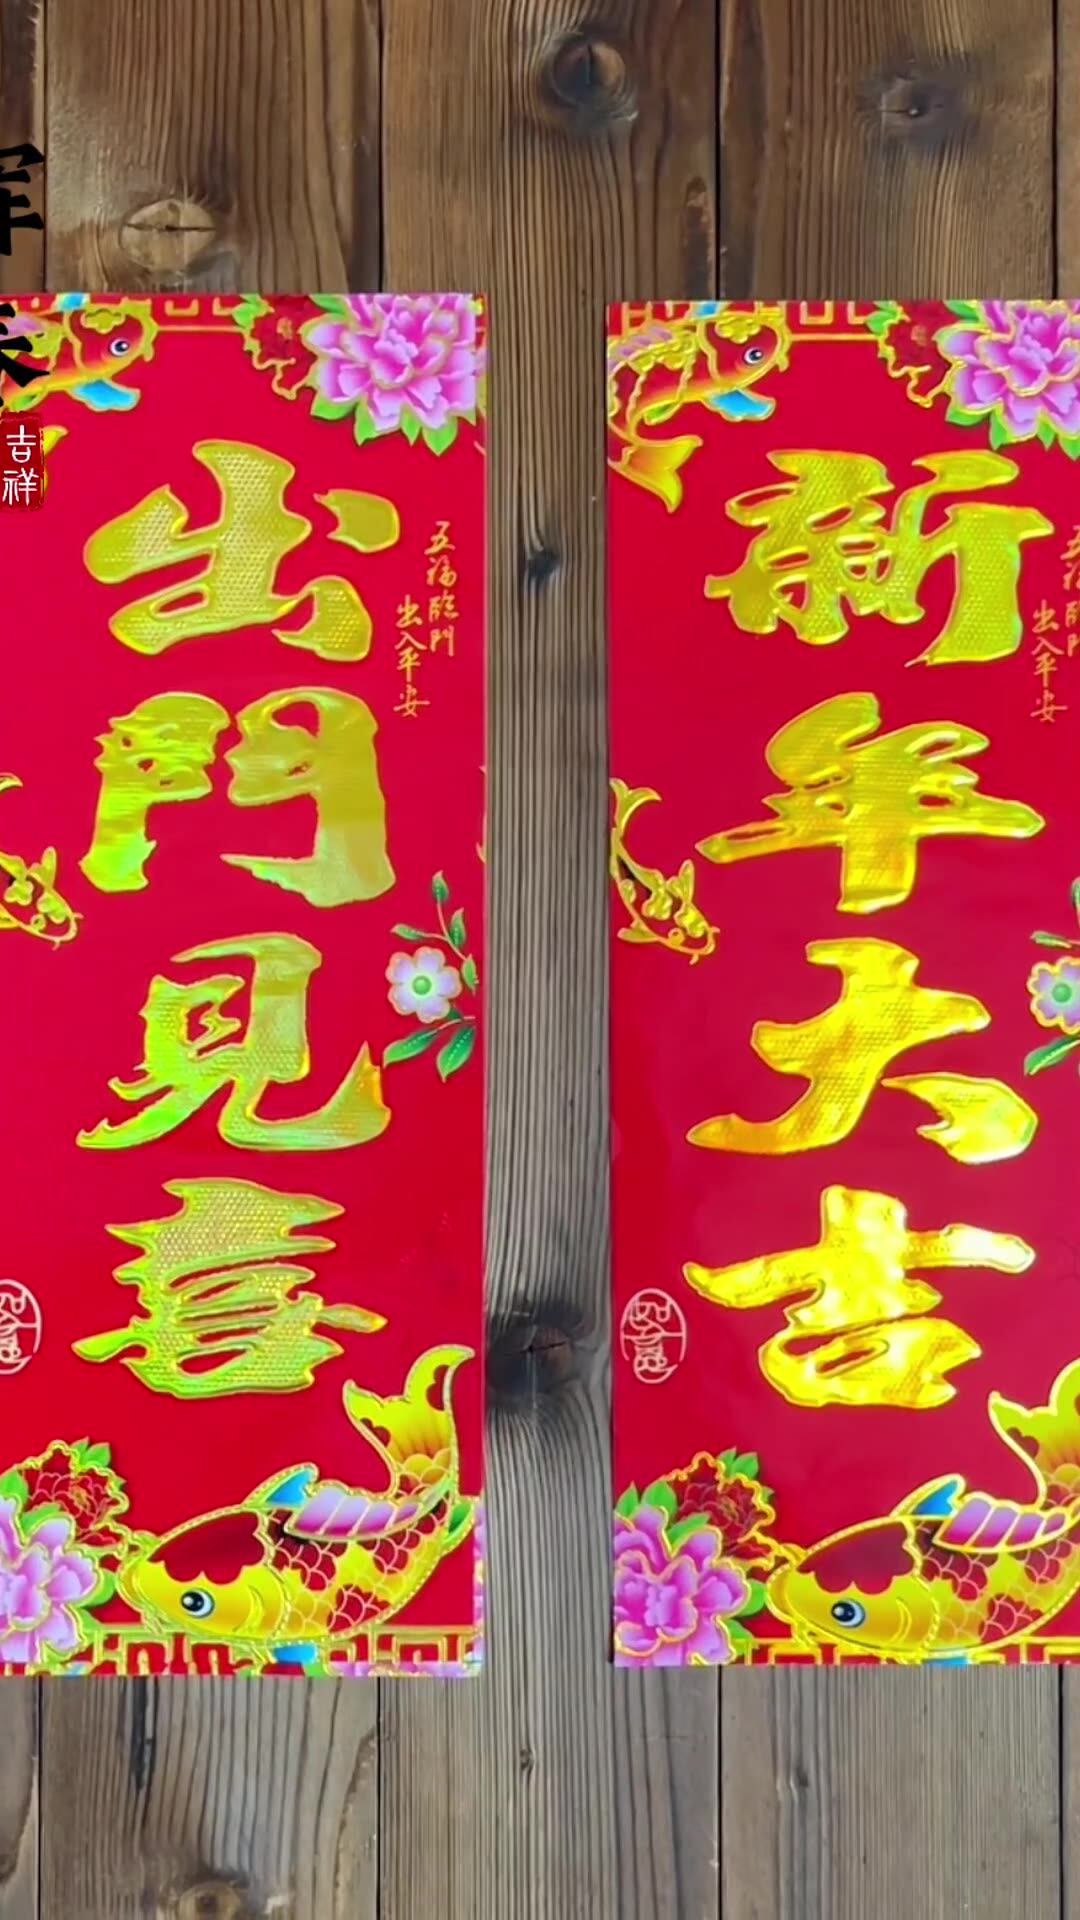 吉祥
出門見喜
五福臨門
出入平安
新年大吉
五福臨門
出入平安